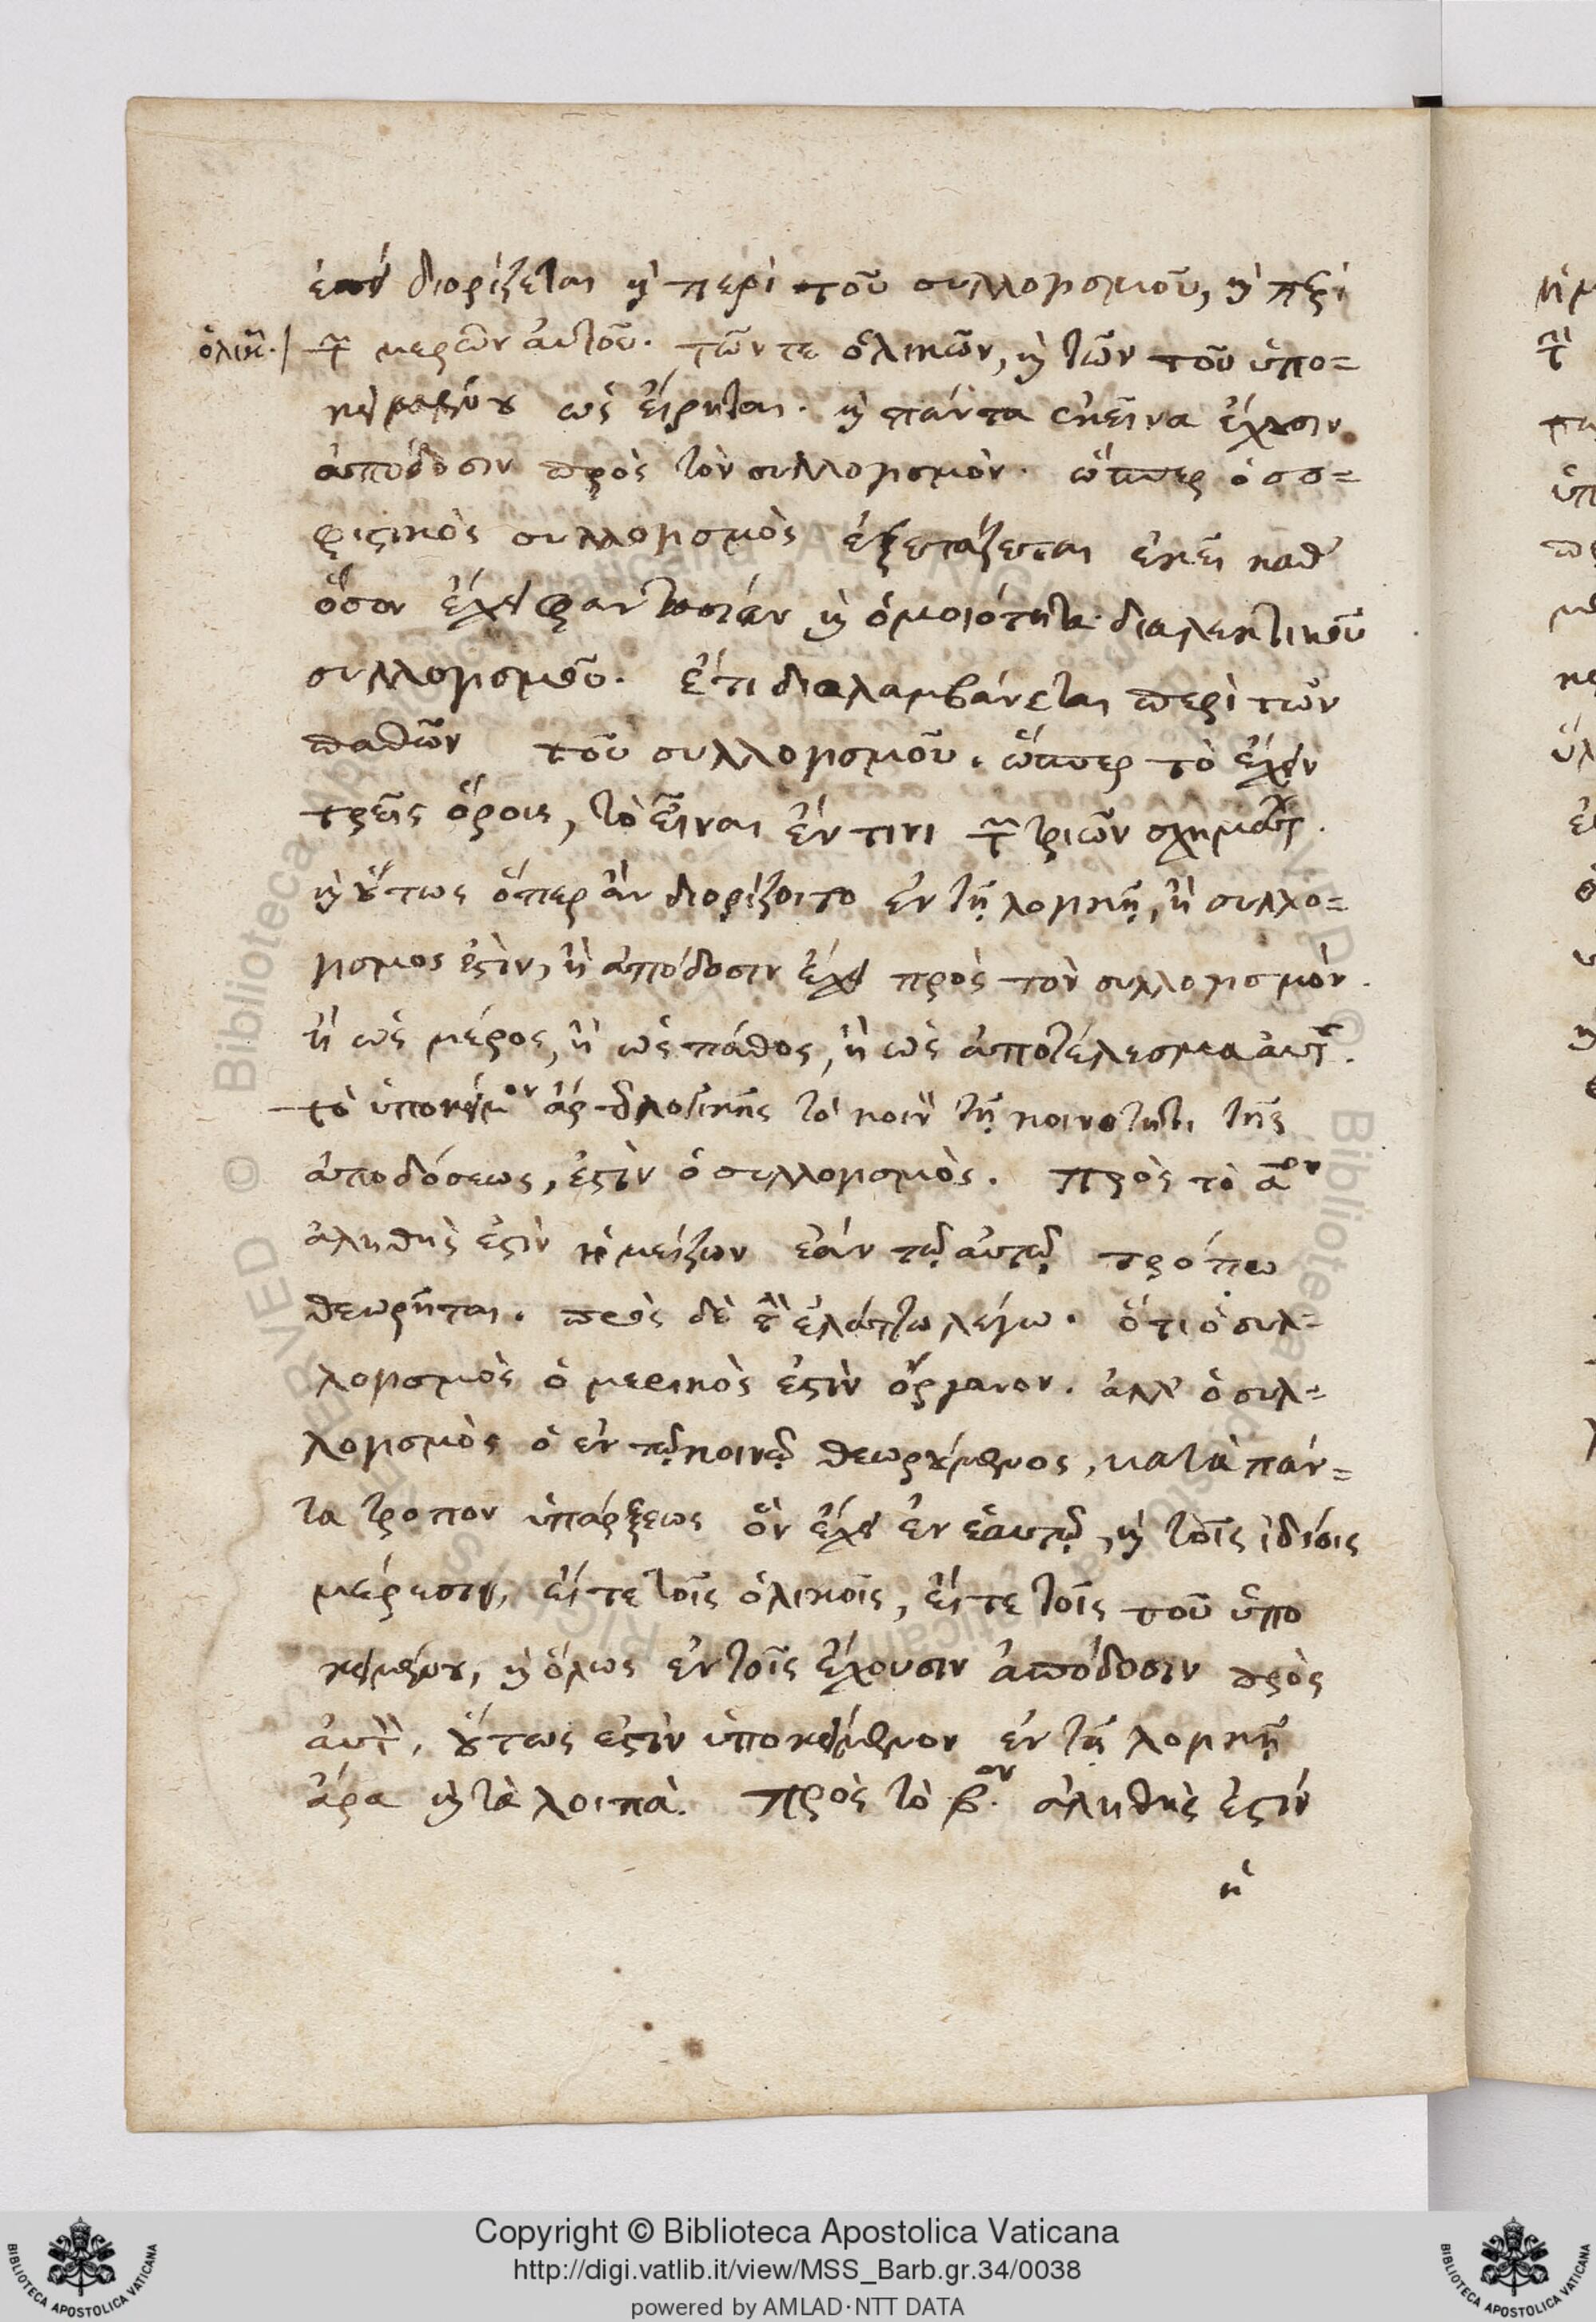 διορίζεται καὶ περὶ τοῦ συλλογισμοῦ, καὶ περὶ
ὁλικῶν
τῶν μερῶν αὐτοῦ. τῶν τε ὁλικῶν, καὶ τῶν τοῦ ὑπο=
κειμένου ὡς εἴρηται. καὶ πάντα ἐκεῖνα ἔχουσιν
ἀπόδοσιν πρὸς τὸν συλλογισμὸν. ὥσπερ ὁ σο=
φιστικὸς συλλογισμὸς ἐξετάζεται ἐκεῖ καθ'
ὅσον ἔχει φαντασίαν καὶ ὁμοιότητα διαλεκτικοῦ
συλλογισμοῦ. ἔτι διαλαμβάνεται περὶ τῶν
παθῶν τοῦ συλλογισμοῦ. ὥσπερ τὸ ἔχειν
τρεῖς ὅρους, τὸ εἶναι ἔν τινι τῶν τριῶν σχημάτων.
καὶ οὕτως ὅπερ ἂν διορίζοιτο ἐν τῇ λογικῇ, ἢ συλλο=
γισμος ἐστὶν, ἢ ἀπόδοσιν ἔχει πρὸς τὸν συλλογισμὸν.
ἢ ὡς μέρος, ἢ ὡς πάθος, ἢ ὡς ἀποτέλεσμα αὐτοῦ.
τὸ ὑποκείμενον ἄρα τῆς λογικῆς τὸ κοινὸν τῇ κοινοτητι τῆς
ἀποδόσεως, ἐστὶν ὁ συλλογισμὸς. Πρὸς τὸ αον
ἀληθὴς ἐστὶν ἡ μείζων ἐὰν τῷ αὐτῷ τρόπω
θεωρῆται. πρὸς δὲ τὴν ἐλάττω λέγω. ὅτι ὁ συλ=
λογισμὸς ὁ μερικὸς ἐστὶν ὄργανον. ἀλλ' ὁ συλ=
λογισμὸς ὁ ἐν τῷ κοινῷ θεωρούμενος, κατὰ πάν=
τα τροπον ὑπάρξεως ὃν ἔχει ἐν ἑαυτῷ, καὶ τοῖς ἰδίοις
μέρεσιν, εἴτε τοῖς ὁλικοῖς, εἴτε τοῖς τοῦ ὑπο
κειμένου, καὶ ὅλως ἐν τοῖς ἔχουσιν ἀπόδοσιν πρὸς
αὐτὸν, οὕτως ἐστὶν ὑποκείμενον ἐν τῇ λογικῇ
ἄρα καὶ τὰ λοιπὰ. Πρὸς τὸ β.ον ἀληθὴς ἐστὶν
ἡ
Copyright © Biblioteca Apostolica Vaticana
http://digi.vatlib.it/view/MSS_Barb.gr.34/0038
powered by AMLAD·NTT DATA